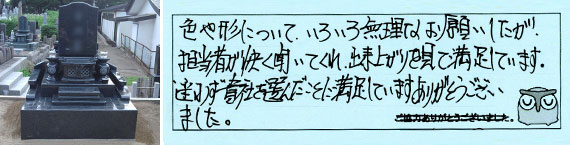 色や形について、いろいろ無理なお願いしたが、
担当者が快く聞いてくれ、出来上がりを見て満足しています。
迷わず貴社を選んだことに満足していますありがとうござい
ました。
ご協力ありがとうございました。